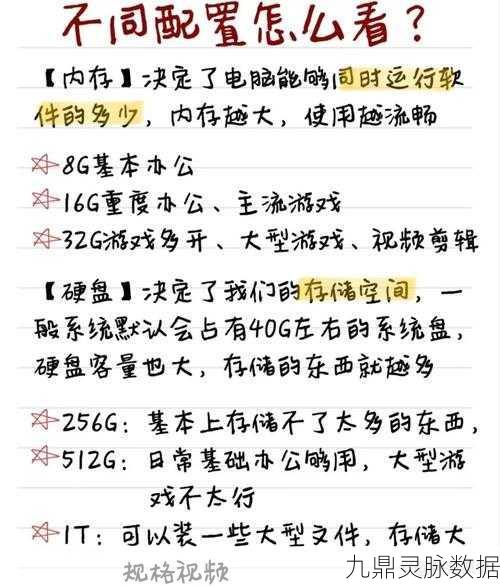 不同配置怎么看？
【内存】决定了电脑能够同时运行软
件的多少，内存越大，使用越流畅
☆8G基本办公
☆16G重度办公、主流游戏
☆32G游戏多开、大型游戏、视频剪辑
【硬盘】决定了我们的存储空间，一
般系统默认会占有40G左右的系统盘，
硬盘容量也大，存储的东西就越多
☆256G：基本上存储不了太多的东西，
☆512G：日常基础办公够用，大型游
戏不太行
☆1T：可以装一些大型文件，存储大
规格视频
九鼎灵脉数据